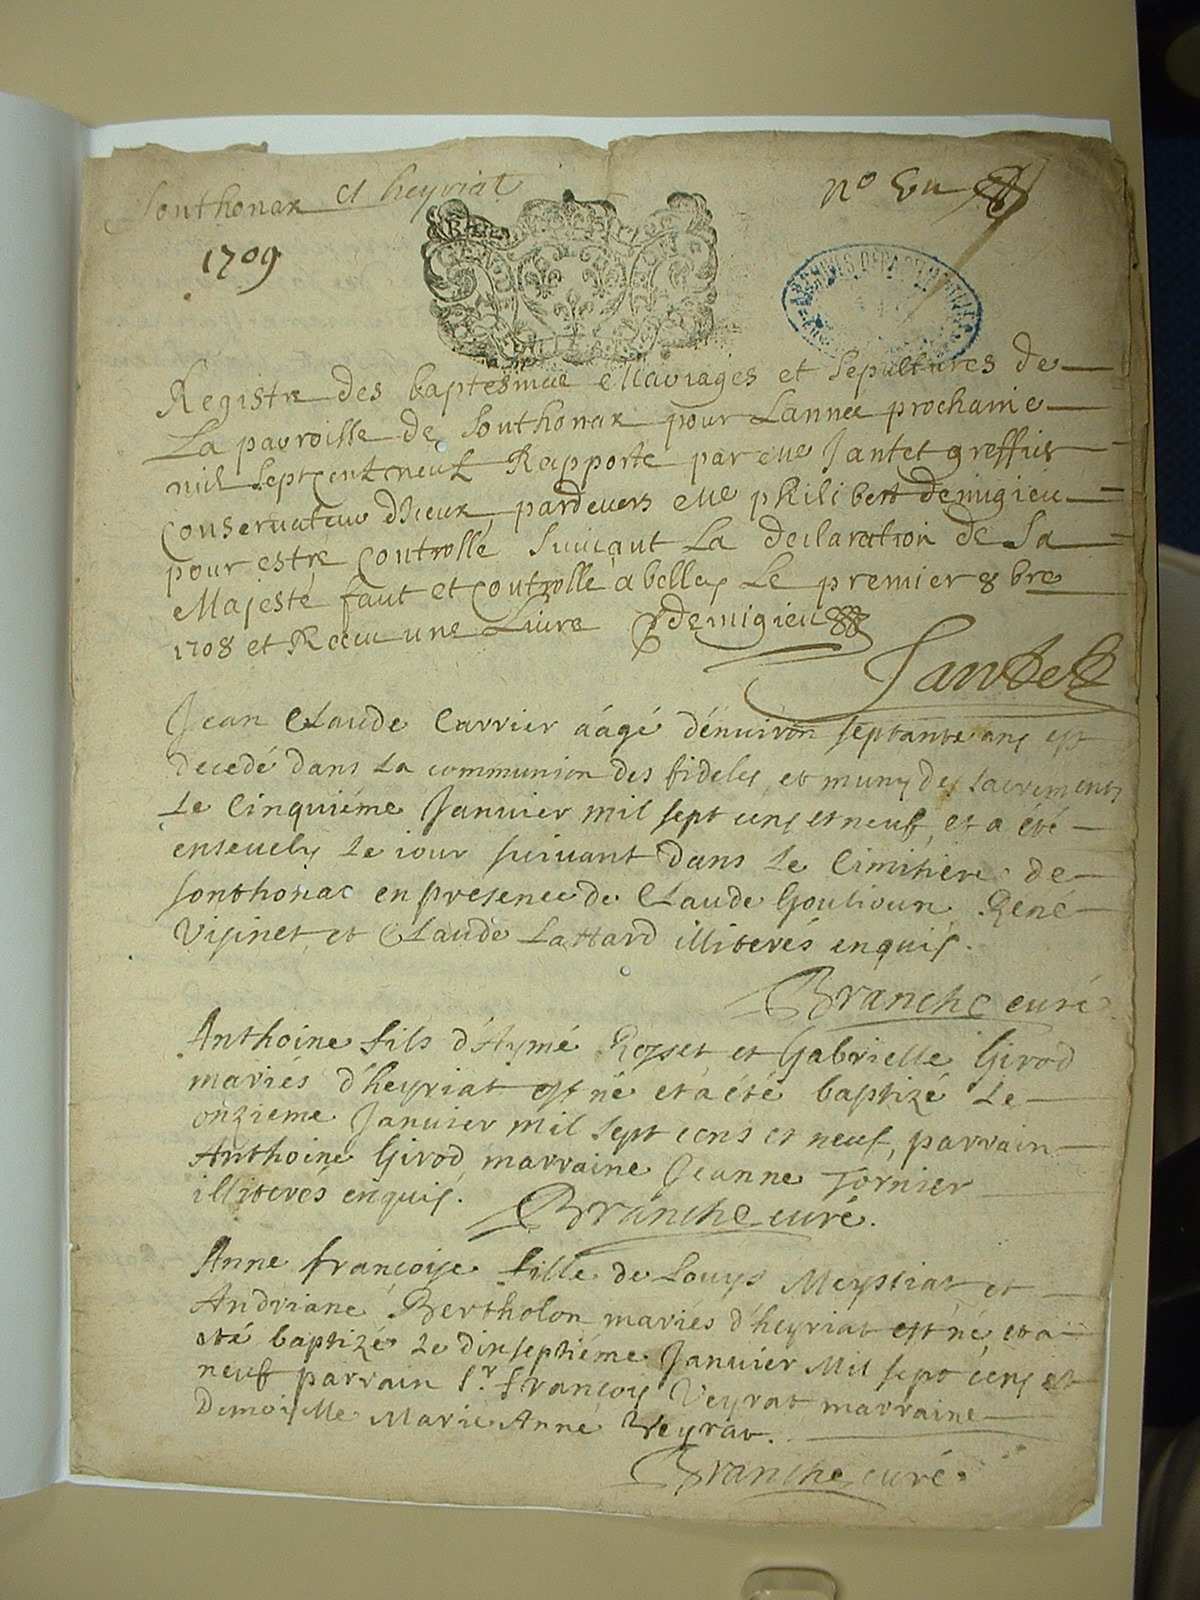 Sonthonax et heyriat
n° Un
1709
ARCHIVES DEPARTEMENTALES
Registre des baptesmae Mariages et sepultures de
La parroisse de Sonthonax pour Lannee prochaine
mil sept cent neuf Rapporte par Me Jantet greffier
Conservateur dIceux pardevers Me philibert demigieu
pour estre Controllé suivant La declaration de Sa
Majesté faut et Controllé a belley Le premier 8bre
1708 et Receu une Livre demigieu
Jantet
Jean Claude Carrier aâgé d'énviron septante ans est
decedé dans La communion des fideles, et muny des sacrements
Le Cinquiéme Janvier mil sept cens et neuf, et a été
ensevely Le jour suivant dans Le Cimitiere de
sonthonac en presence de Claude Goulioun René
Visinet, et Claude Lattard illiterés enquis.
Branche curé
Anthoine fils d'Aymé Rosset et Gabrielle Girod
mariés d'heyriat est né et a été baptizé Le
onzieme Janvier mil sept cens et neuf, parrain
Anthoine Girod marraine Jeanne Tornier
illiterés enquis. Branche curé.
Anne françoise fille de Louys Meystiat et
Andriane Bertholon mariés d'heyriat est né et a
eté baptizé Le dixseptiéme Janvier Mil sept cens et
neuf parrain Sr. françois Veyrat marraine
Demoiselle Marie Anne Veyrat.
Branche curé.